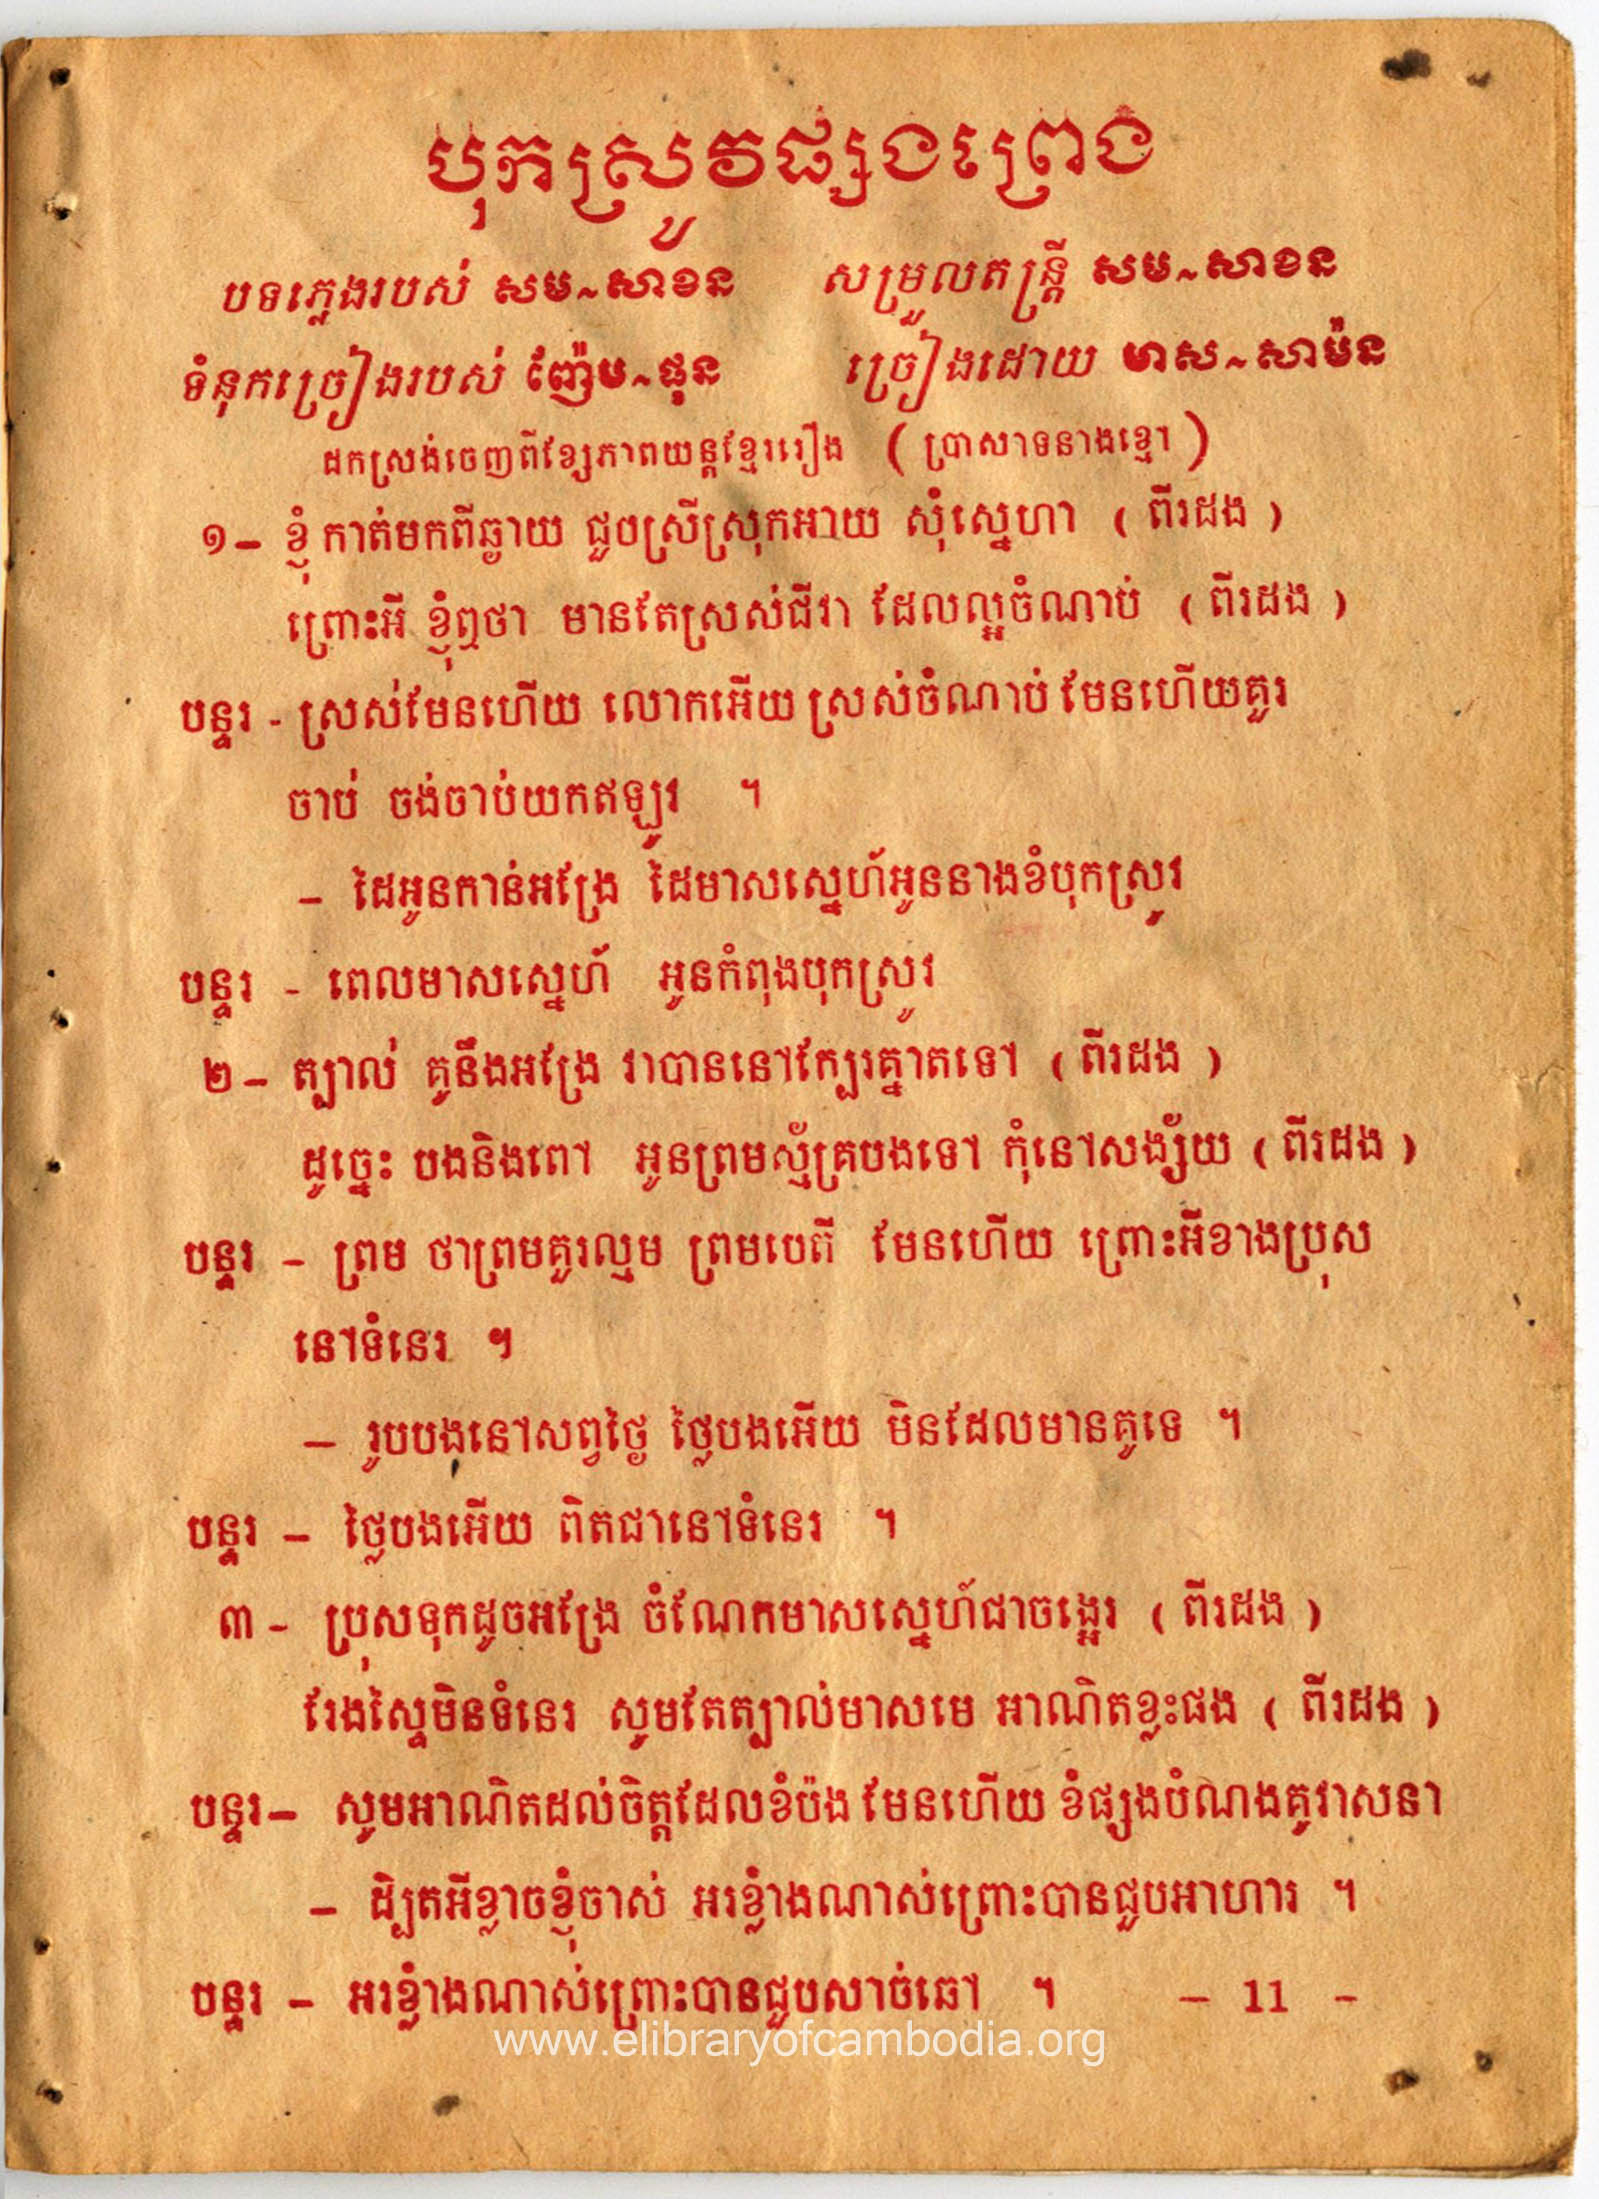 បុកស្រូវផ្សងព្រេង
បទភ្លេងរបស់ សម~សាខន សម្រួលតន្ត្រី សម~សាខន
ទំនុកច្រៀងរបស់ ញ៉ែម~ផូន ច្រៀងដោយ មាស~សាម៉ន
ដកស្រង់ចេញពីខ្សែភាពយន្តខ្មែររឿង ( ប្រាសាទនាងខ្មៅ )
១- ខ្ញុំ កាត់មកពីឆ្ងាយ ជួបស្រីស្រុកអាយ សុំស្នេហា ( ពីរដង )
ព្រោះអី ខ្ញុំឮថា មានតែស្រស់ជីវា ដែលល្អចំណាប់ ( ពីរដង )
បន្ទរ - ស្រស់មែនហើយ លោកអើយ ស្រស់ចំណាប់ មែនហើយគួរ
ចាប់ ចង់ចាប់យកឥឡូវ ។
- ដៃអូនកាន់អង្រែ ដៃមាសស្នេហ៍អូននាងខំបុកស្រូវ
បន្ទរ - ពេលមាសស្នេហ៍ អូនកំពុងបុកស្រូវ
២- ត្បាល់ គូនឹងអង្រែ វាបាននៅក្បែរគ្នាតទៅ ( ពីរដង )
ដូច្នេះ បងនិងពៅ អូនព្រមស្ម័គ្របងទៅ កុំនៅសង្ស័យ ( ពីរដង )
បន្ទរ - ព្រម ថាព្រមគួរល្មម ព្រមបេតី មែនហើយ ព្រោះអីខាងប្រុស
នៅទំនេរ ។
- រូបបងនៅសព្វថ្ងៃ ថ្លៃបងអើយ មិនដែលមានគូទេ ។
បន្ទរ - ថ្លៃបងអើយ ពិតជានៅទំនេរ ។
៣- ប្រុសទុកដូចអង្រែ ចំណែកមាសស្នេហ៍ជាចង្អេរ ( ពីរដង )
រែងស្ទៃមិនទំនេរ សូមតែត្បាល់មាសមេ អាណិតខ្លះផង ( ពីរដង )
បន្ទរ- សូមអាណិតដល់ចិត្តដែលខំប៉ង មែនហើយ ខំផ្សងបំណងគូវាសនា
- ដ្បិតអីខ្លាចខ្ញុំចាស់ អរខ្លាំងណាស់ព្រោះបានជួបអាហារ ។
បន្ទរ - អរខ្លាំងណាស់ព្រោះបានជួបសាច់ឆៅ ។ - 11 -
www.elibraryofcambodia.org